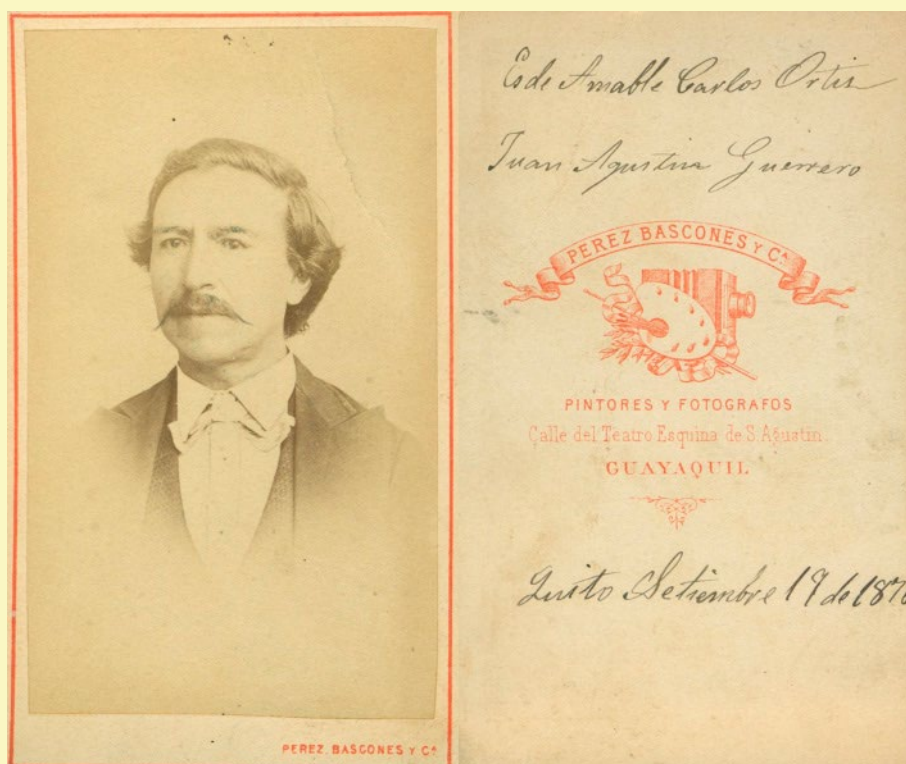 PEREZ BASCONES Y Cª
Es de Amable Carlos Ortiz
Juan Agustin Guerrero
PEREZ BASCONES Y Cª
PINTORES Y FOTOGRAFOS
Calle del Teatro Esquina de S. Agustin.
GUAYAQUIL
Quito Setiembre 19 de